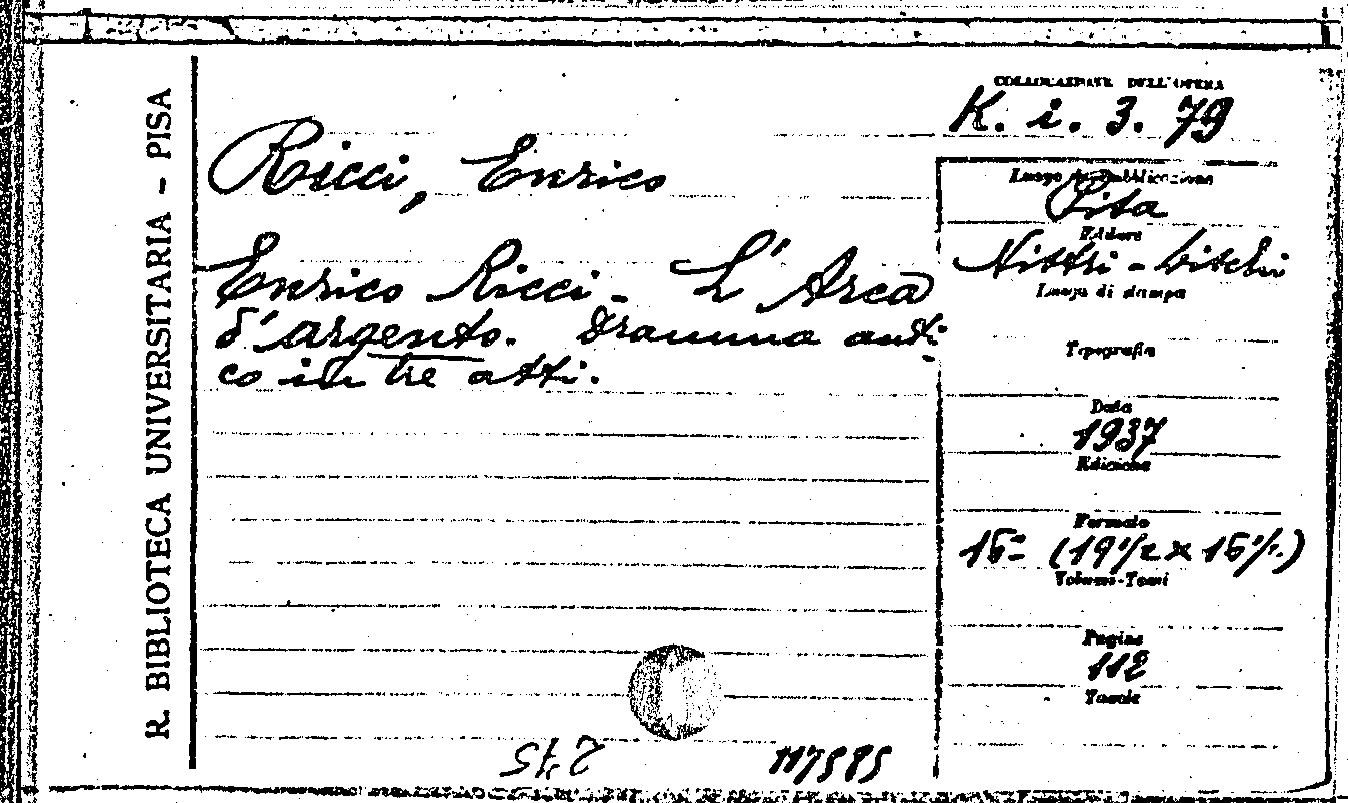 R. BIBLIOTECA UNIVERSITARIA - PISA
COLLOCAZIONE DELL'OPERA
K. i. 3. 79
Ricci, Enrico
Luogo di Pubblicazione
Pisa
Editore
Nistri - Lischi
Enrico Ricci - L'Arca
d'argento. Dramma anti-
co in tre atti.
Luogo di stampa
Tipografia
Data
1937
Edizione
Formato
16º (19½ x 16½)
Volumi-Tomi
Pagine
112
Tavole
117585